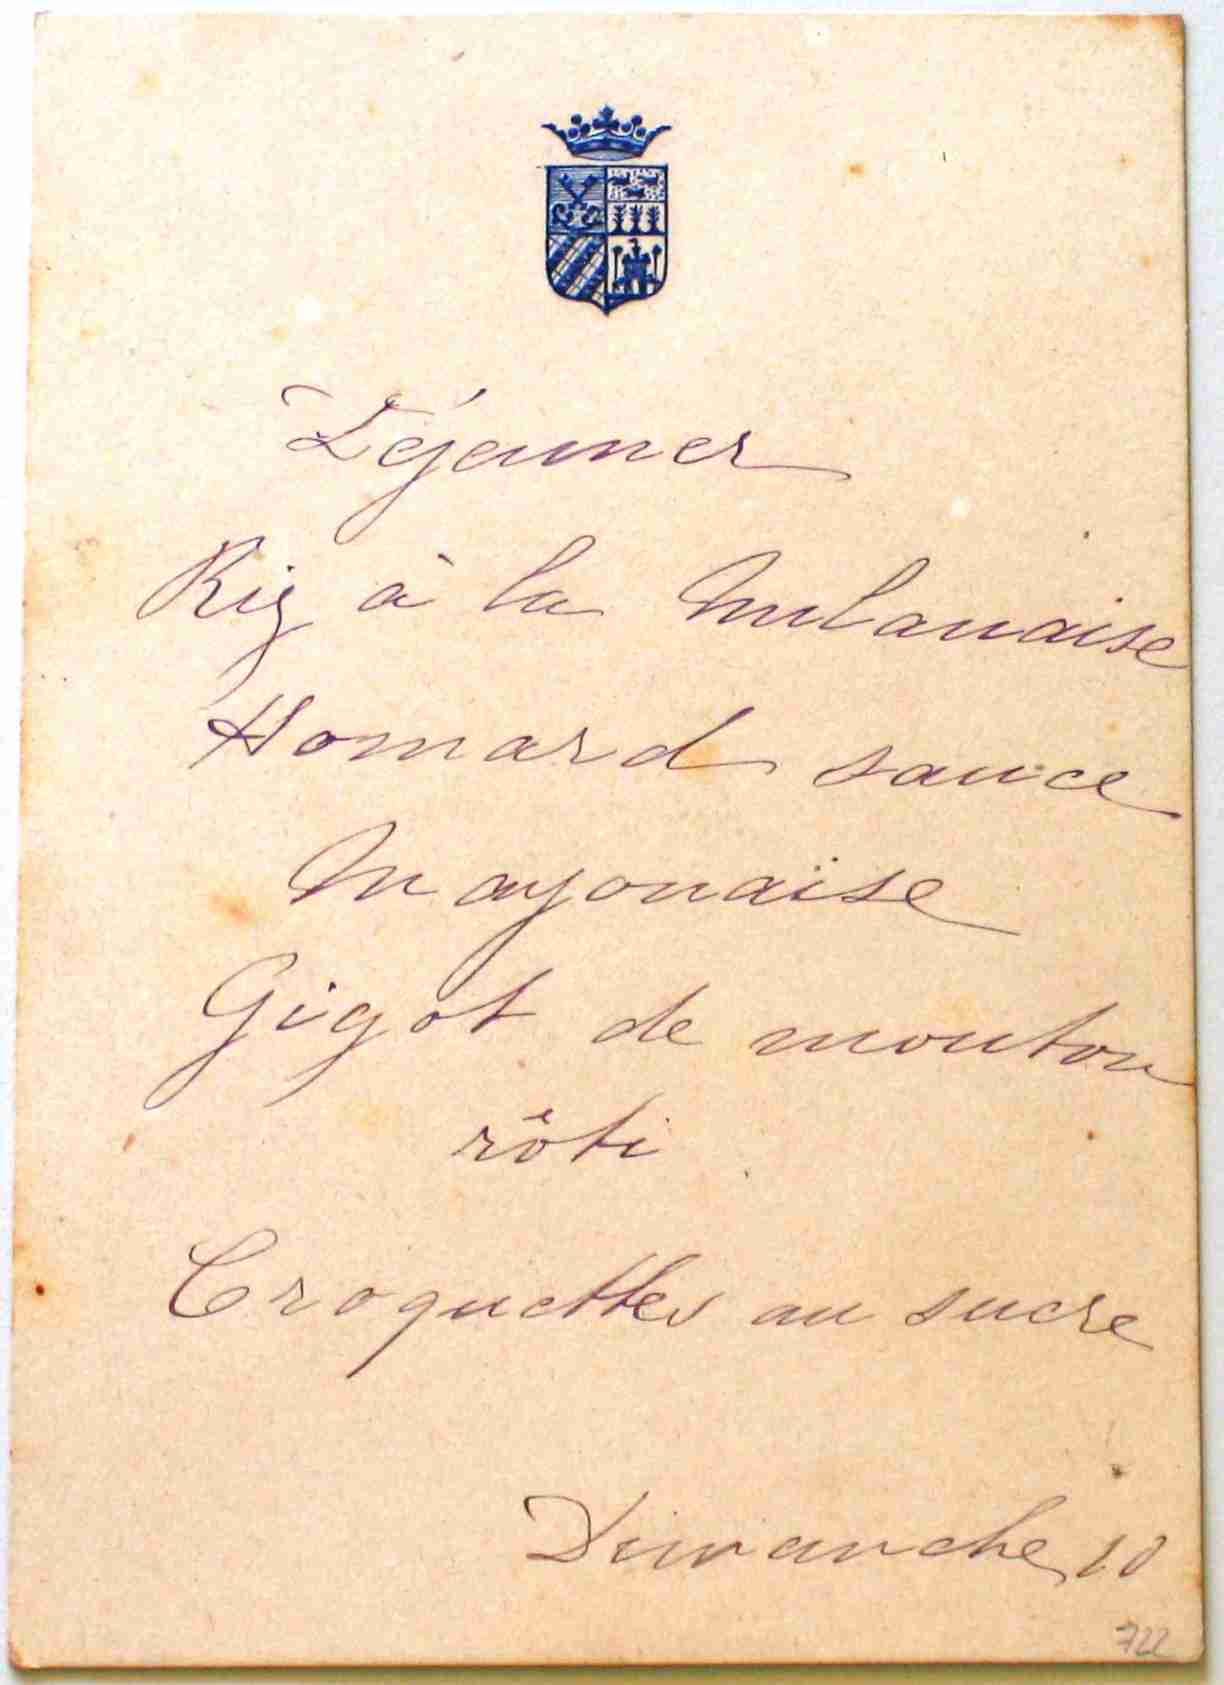 Déjeuner
Riz à la Milanaise
Homard sauce
Mayonaïse
Gigot de mouton
rôti
Croquettes au sucre
Dimanche 10
722